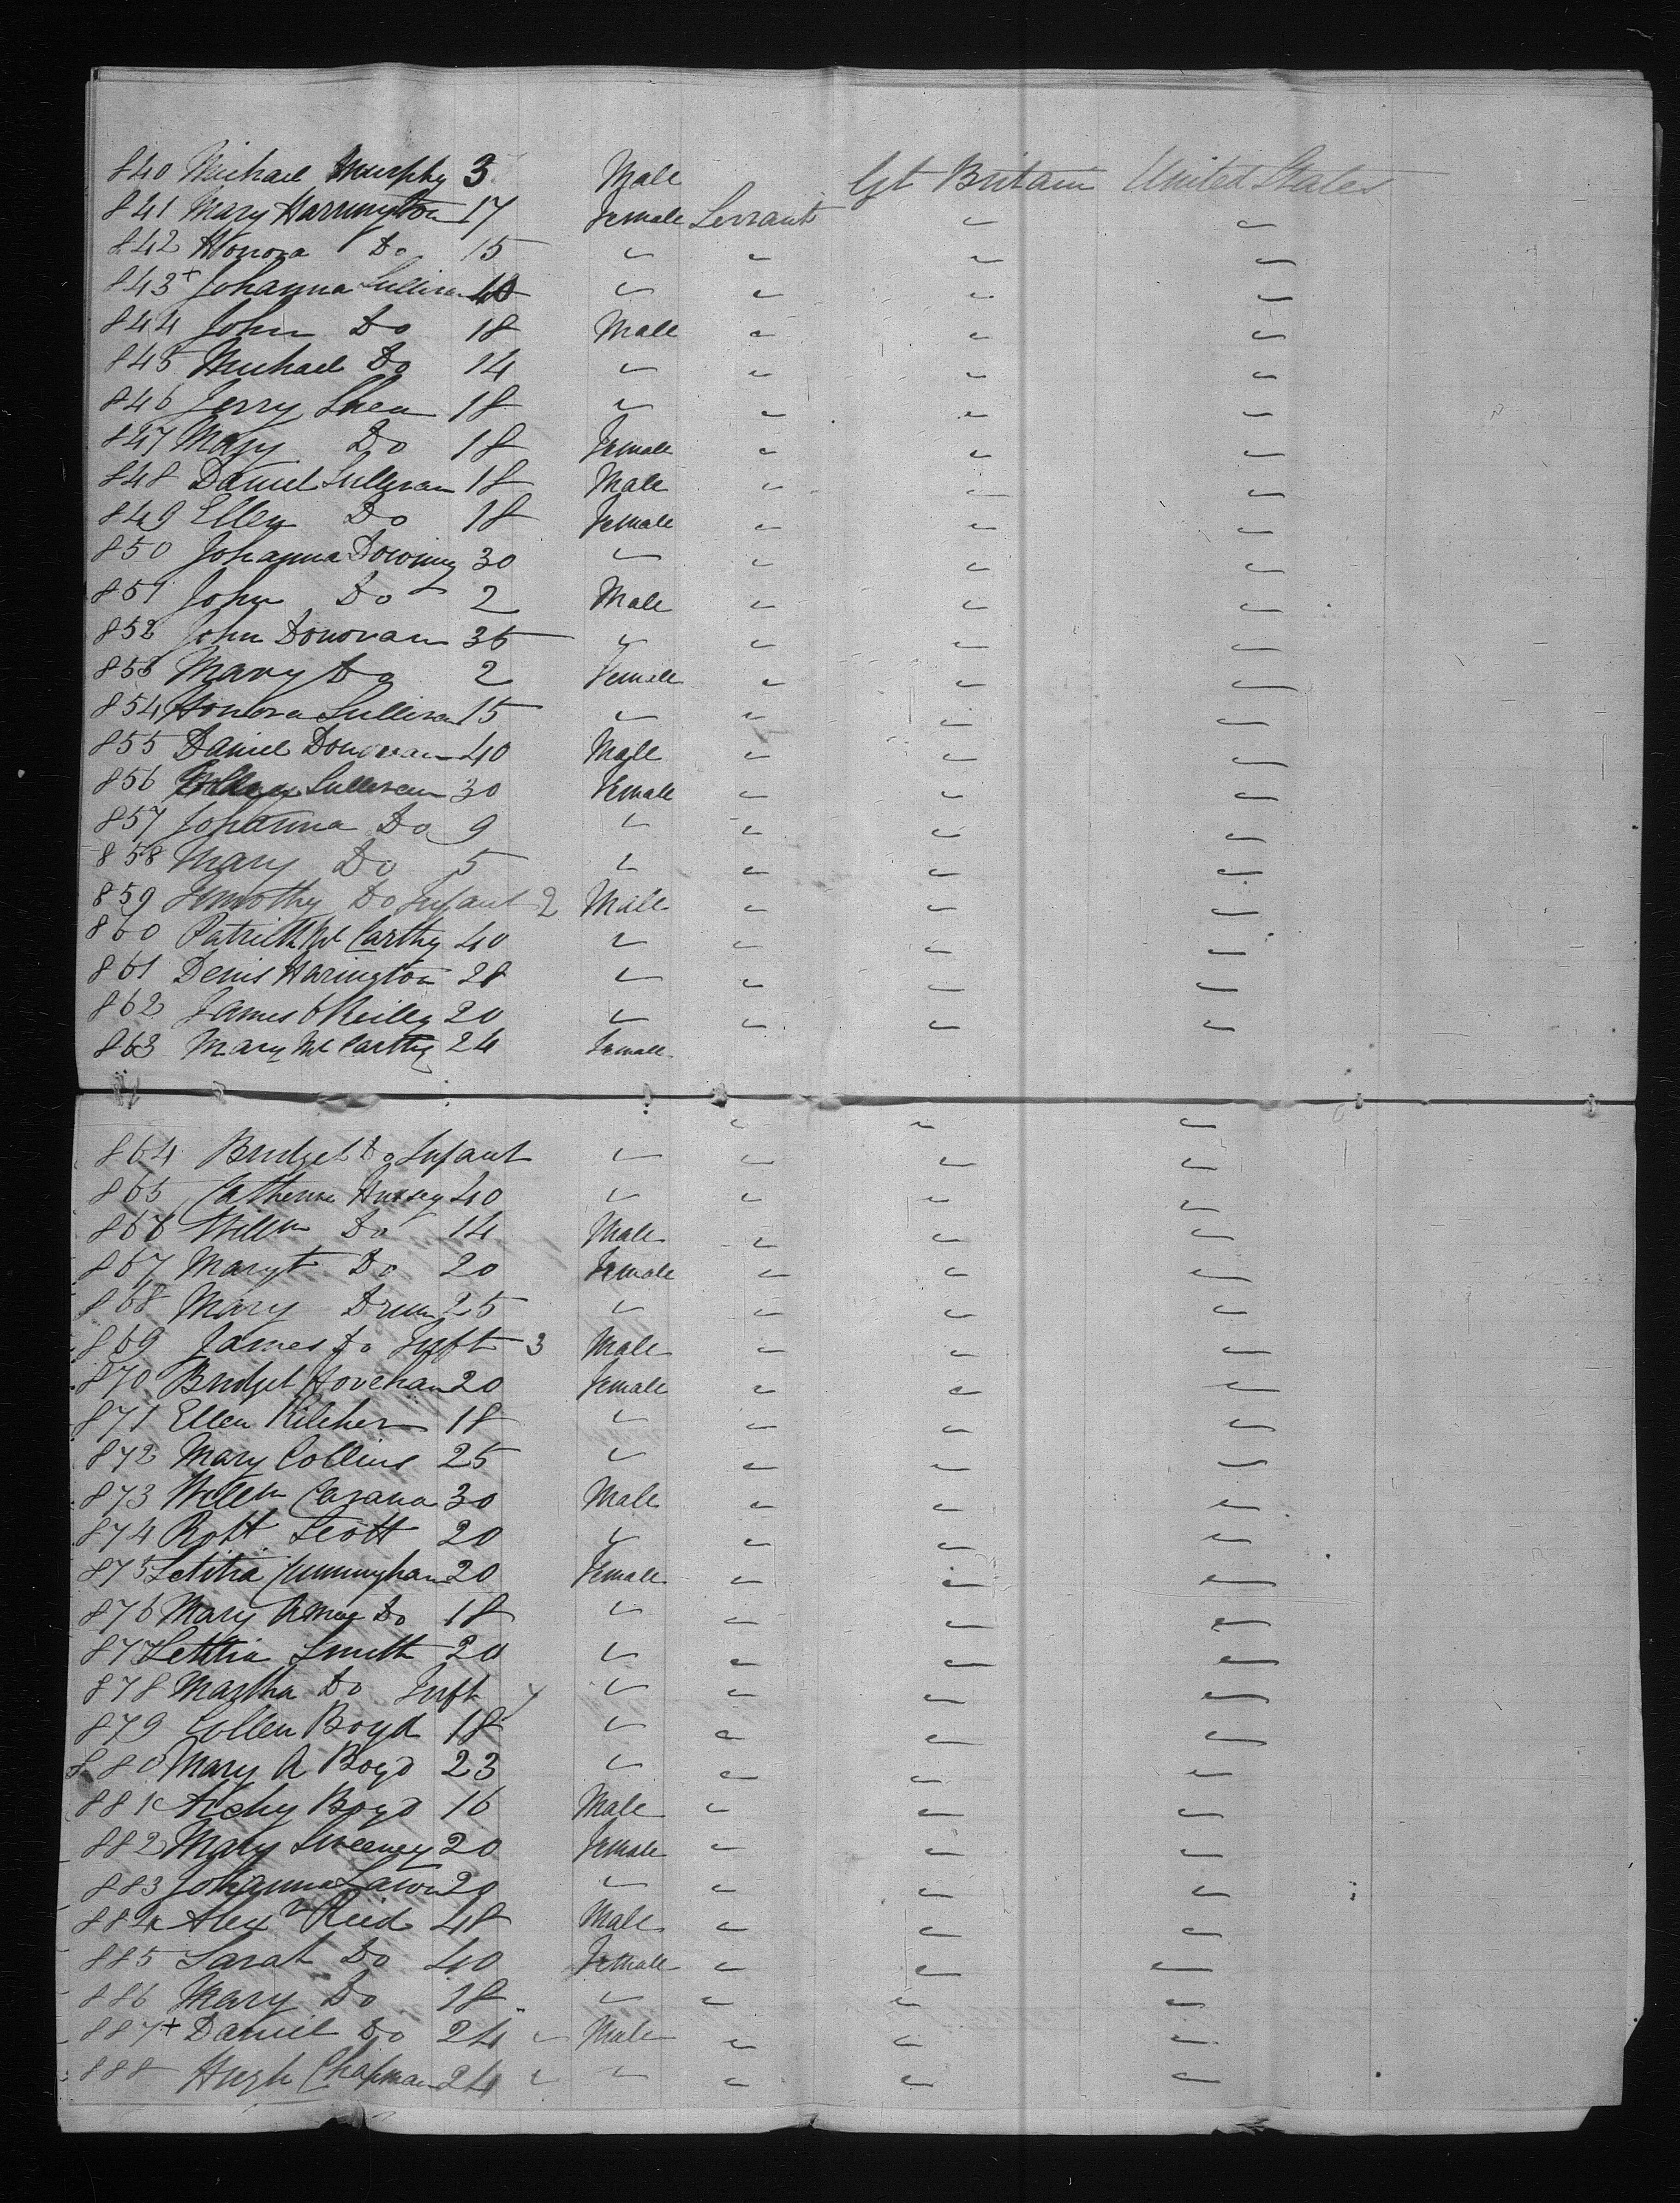 840 Michael Murphy 3 Male Gt Britain United States
841 Mary Harrington 17 Female Servant " "
842 Honora Do 15 " " " "
843+ Johanna Sullivan 40 " " " "
844 John Do 18 Male " " "
845 Michael Do 14 " " " "
846 Jerry Shea 18 " " " "
847 Mary Do 18 Female " " "
848 Daniel Sullivan 18 Male " " "
849 Ellen Do 18 Female " " "
850 Johanna Downing 30 " " " "
851 John Do 2 Male " " "
852 John Donovan 35 " " " "
853 Mary Do 2 Female " " "
854 Honora Sullivan 15 " " " "
855 Daniel Donovan 40 Male " " "
856 Sullivan 30 Female " " "
857 Johanna Do 9 " " " "
858 Mary Do 5 " " " "
859 Timothy Do Infant 2 Male " " "
860 Patrick Mc Carthy 40 " " " "
861 Denis Harington 28 " " " "
862 James O Reiley 20 " " " "
863 Mary Mc Carthy 24 Female " " "
864 Bridget Do Infant " " " "
865 Catherine Hussey 40 " " " "
866 Willm Do 14 Male " " "
867 Margt Do 20 Female " " "
868 Mary Drum 25 " " " "
869 James Do Inft 3 Male " " "
870 Bridget 20 Female " " "
871 Ellen Kilcher 18 " " " "
872 Mary Collins 25 " " " "
873 Willm 30 Male " " "
874 Robt. Scott 20 " " " "
875 Letitia Cunningham 20 Female " " "
876 Mary Do 18 " " " "
877 Letitia Smith 20 " " " "
878 Martha Do Inft 4 " " " "
879 Boyd 18 " " " "
880 Mary A Boyd 23 " " " "
881 Archy Boyd 16 Male " " "
882 Mary Sweeney 20 Female " " "
883 Johanna 20 " " " "
884 Alexr Reid 48 Male " " "
885 Sarah Do 40 Female " " "
886 Mary Do 18 " " " "
887+ Daniel Do 24 " Male " " "
888 Hugh Chapman 24 " " " " "